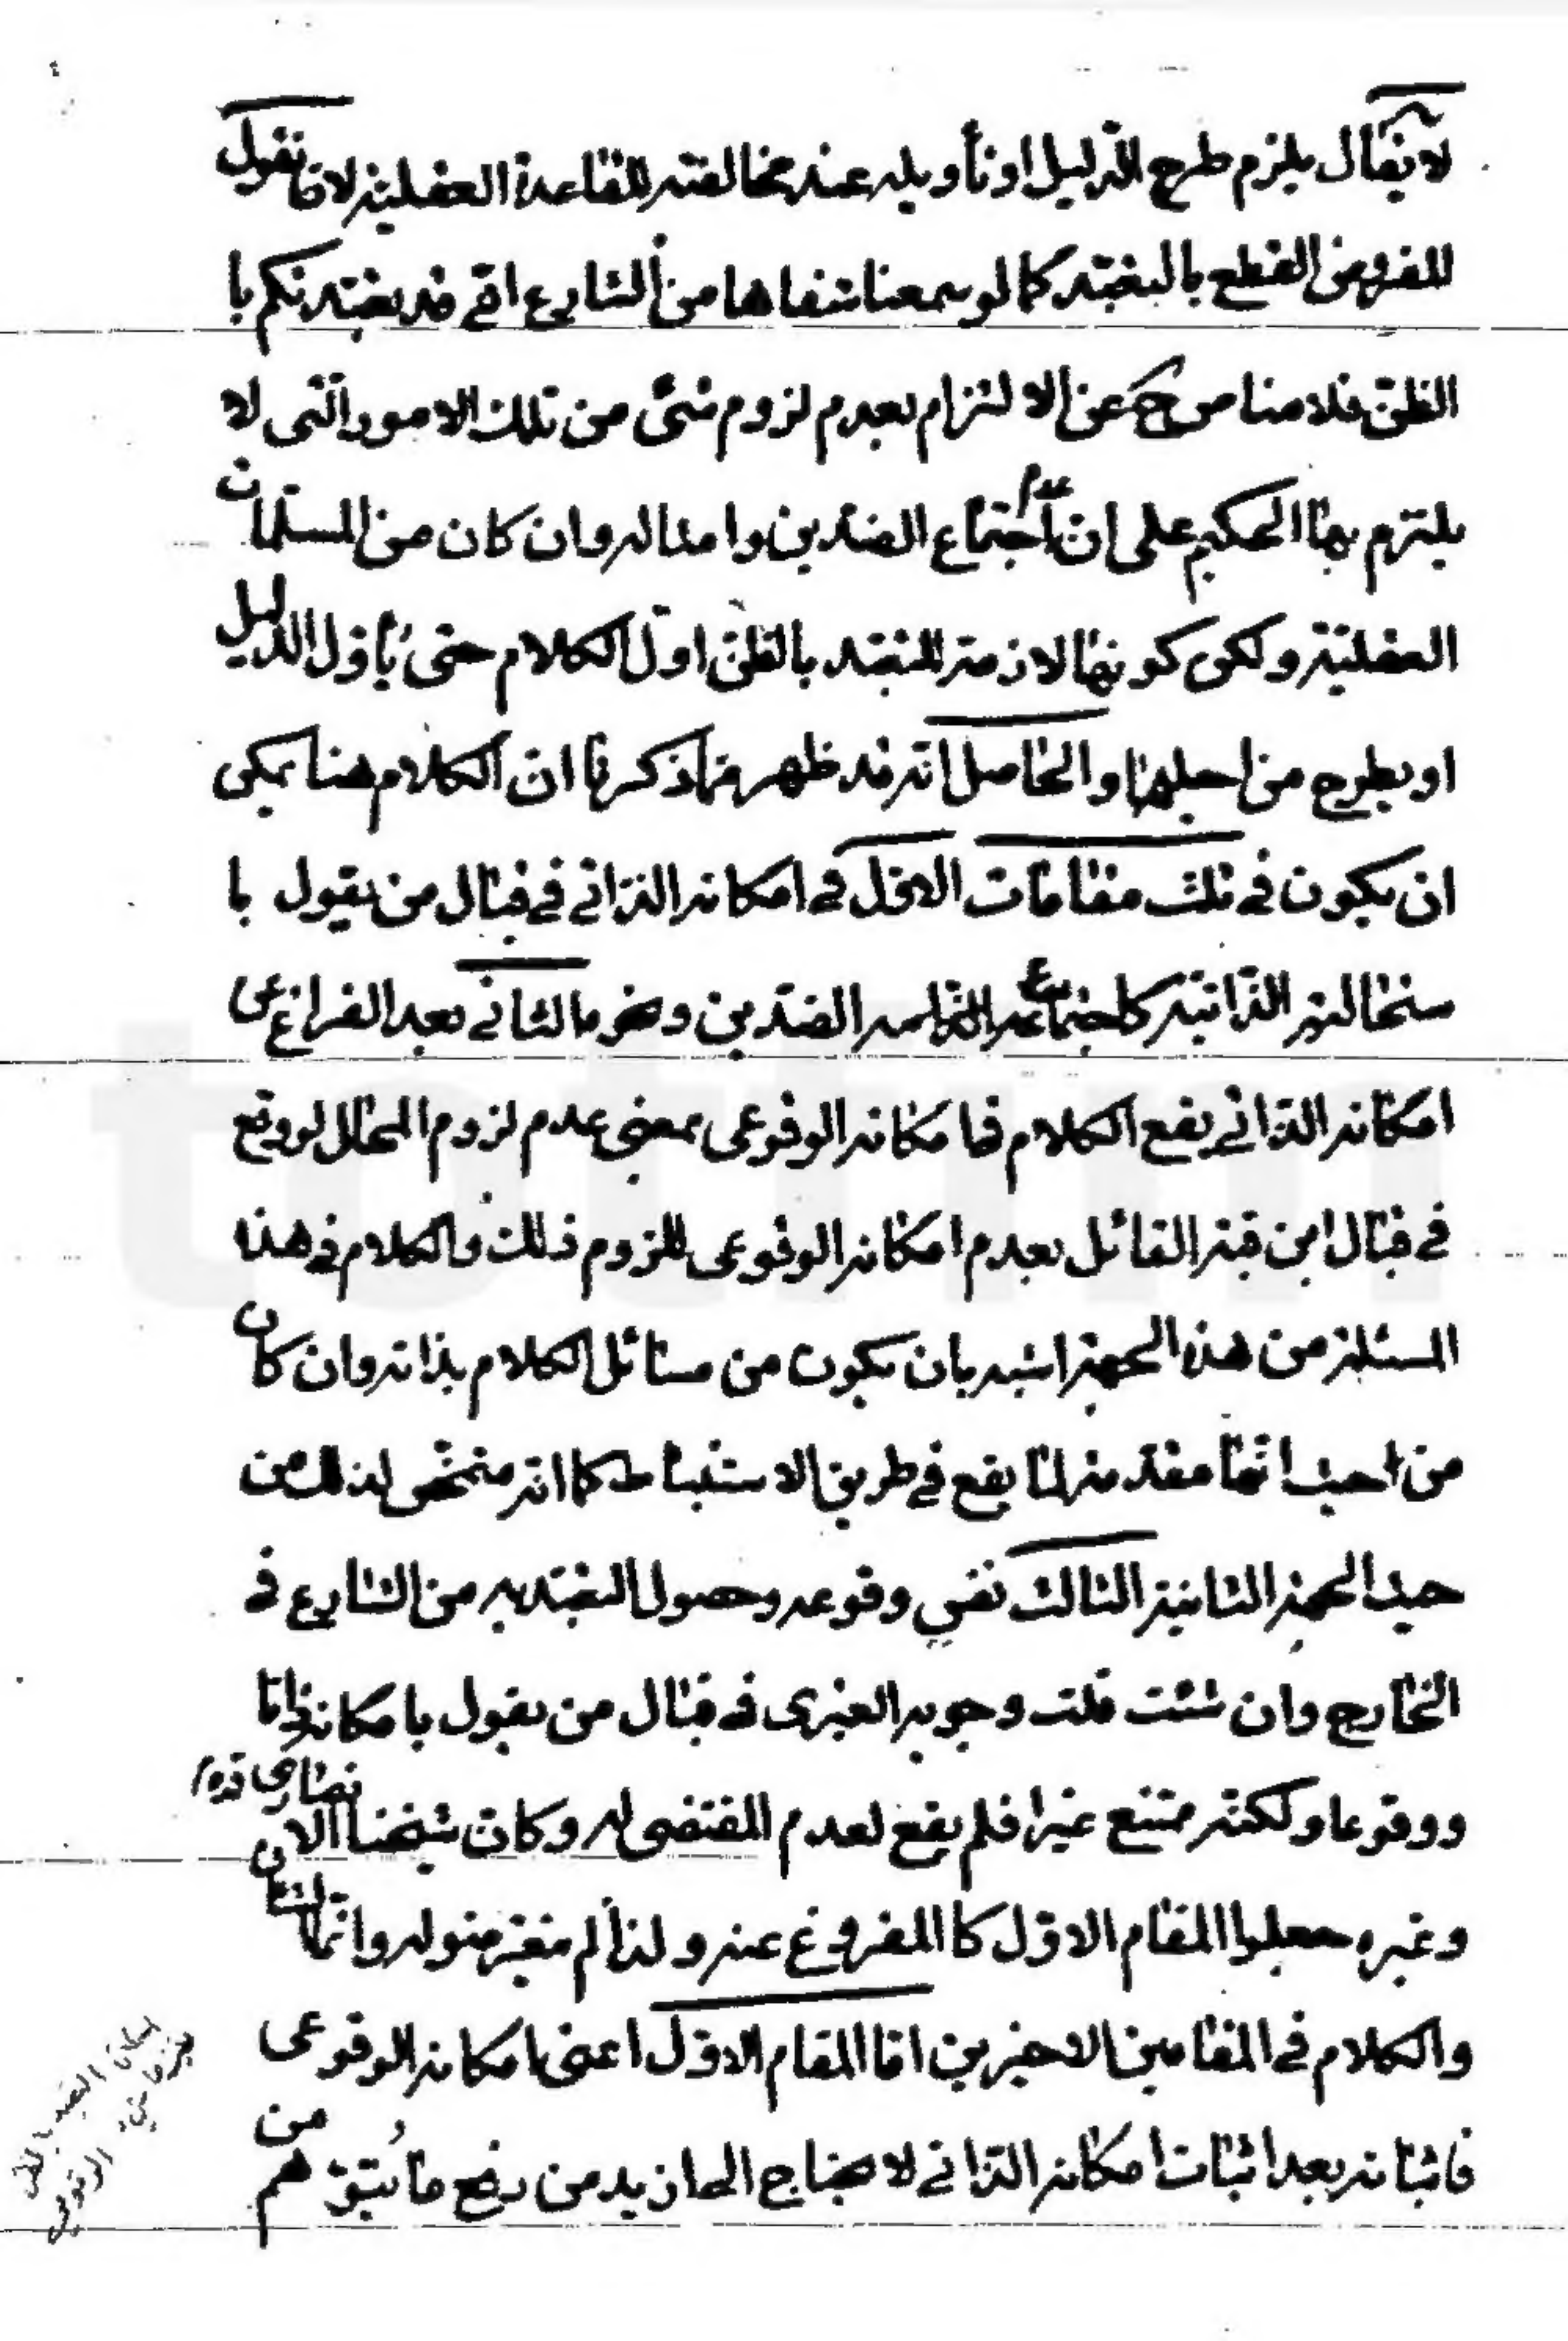 لا يقال يلزم طرح الدليل او تأويله عند مخالفته للقاعدة العقلية لانا نقول
المفروض القطع بالتعبّد كما لو سمعنا شفاها من الشارع انّي قد تعبّدتكم با
الظنّ فلا مناص ح عن الالتزام بعدم لزوم شئ من تلك الامور الّتى لا
يلتزم بها الحكيم على انّ عدم اجتماع الضدّين وامثاله وان كان من المسلّمات
العقليّة ولكن كونها لازمة للتعبّد بالظنّ اوّل الكلام حتّى يأوّل الدليل
او يطرح من اجلها والحاصل انّه قد ظهر ممّا ذكرنا انّ الكلام هنا يمكن
ان يكون في ثلث مقامات الاوّل في امكانه الذّاتي في قبال من يقول با
ستحالته الذّاتيّة كاجتماع الضدّين ونحوها الثاني بعد الفراغ عن
امكانه الذّاتي يقع الكلام في امكانه الوقوعى بمعنى عدم لزوم المحال لو وقع
في قبال ابن قبة القائل بعدم امكانه الوقوعى للزوم ذلك والكلام في هذه
المسئلة من هذه الجهة اشبه بان يكون من مسائل الكلام بذاته وان كان
من حيث انّها مقدّمة لما يقع في طريق الاستنباط كما انّه متمحّض لذلك من
حيث الجهة الثانية الثالث نفس وقوعه وحصول التعبّد به من الشارع في
الخارج وان شئت قلت وجوبه الغيرى في قبال من يقول بامكانه ذاتا
ووقوعا ولكنّه ممتنع غيرا فلم يقع لعدم المقتضى له وكان شيخنا الانصارى قده
وغيره جعلوا المقام الاوّل كالمفروغ عنه ولذا لم يتعرّضوا له وانّما الشان
والكلام في المقامين الاخيرين امّا المقام الاوّل اعنى امكانه الوقوعى
فاثباته بعد اثبات امكانه الذّاتي لا يحتاج الى ازيد من رفع ما يتوهّم من
امكان التعبد بالظن
الوقوعي